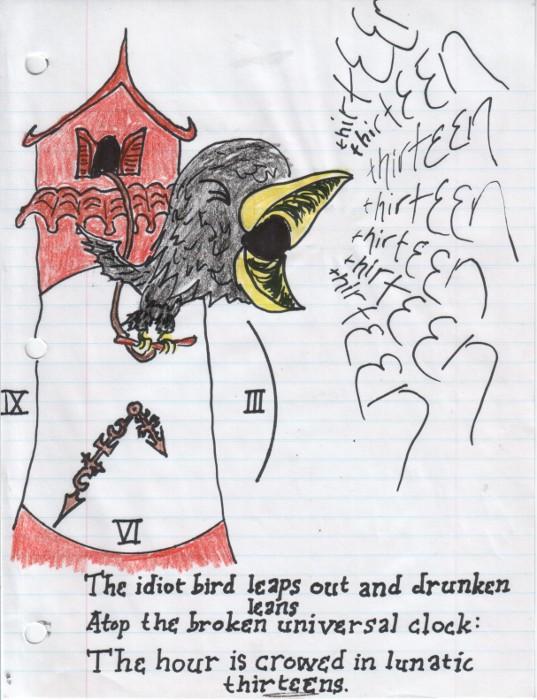 thirtEEn
thirtEEn
thirtEEn
thirtEEn
thirtEEn
thirtEEn
thirtEEn
IX
III
VI
The idiot bird leaps out and drunken
leans
Atop the broken universal clock:
The hour is crowed in lunatic
thirteens.